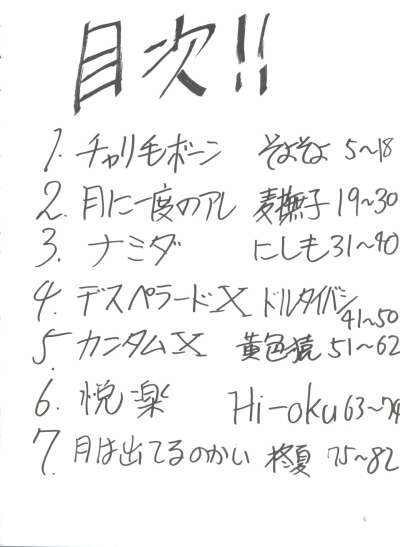 目次!!
1. チャリ毛ボーン そよそよ 5~18
2. 月に一度のアレ 麦撫子 19~30
3. ナミダ にしも 31~40
4. デスペラードX ドルタイバシ 41~50
5. カンタムX 黄色猿 51~62
6. 悦楽 Hi-oku 63~74
7. 月は出てるのかい 柊夏 75~82